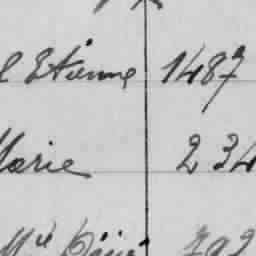 l Etienne 1487
Marie 234
Mie 792